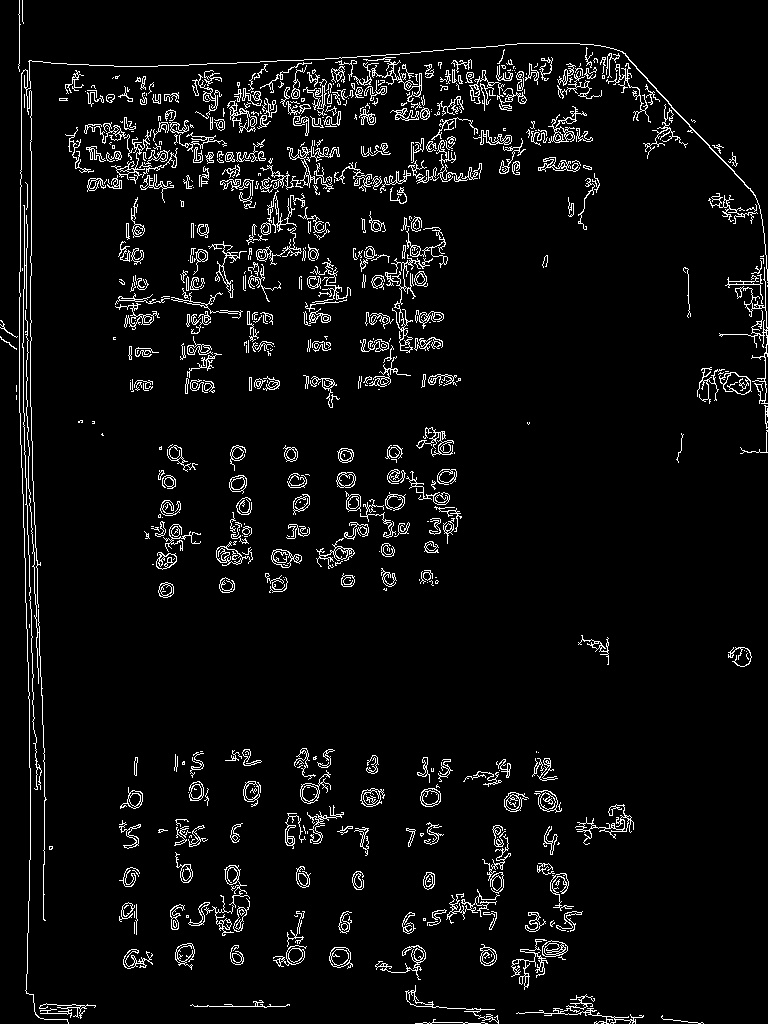 The sum of the co-efficients of the high pass
mask has to be equal to zero
This is because when we place this mask
over the regions the result should be zero-
10 10 10 10 10 10
10 10 10 10 10 10
10 10 10 10 10 10
100 100 100 100 100 100
100 100 100 100 100 100
100 100 100 100 100 100
0 0 0 0 0 0
0 0 0 0 0 0
0 0 0 0 0 0
30 30 30 30 30 30
0 0 0 0 0 0
0 0 0 0 0 0
1 1.5 2 2.5 3 3.5 4 2
0 0 0 0 0 0 0 0
5 5.5 6 6.5 7 7.5 8 4
0 0 0 0 0 0 0 0
9 8.5 8 7 6 6.5 7 3.5
0 0 0 0 0 0 0 0